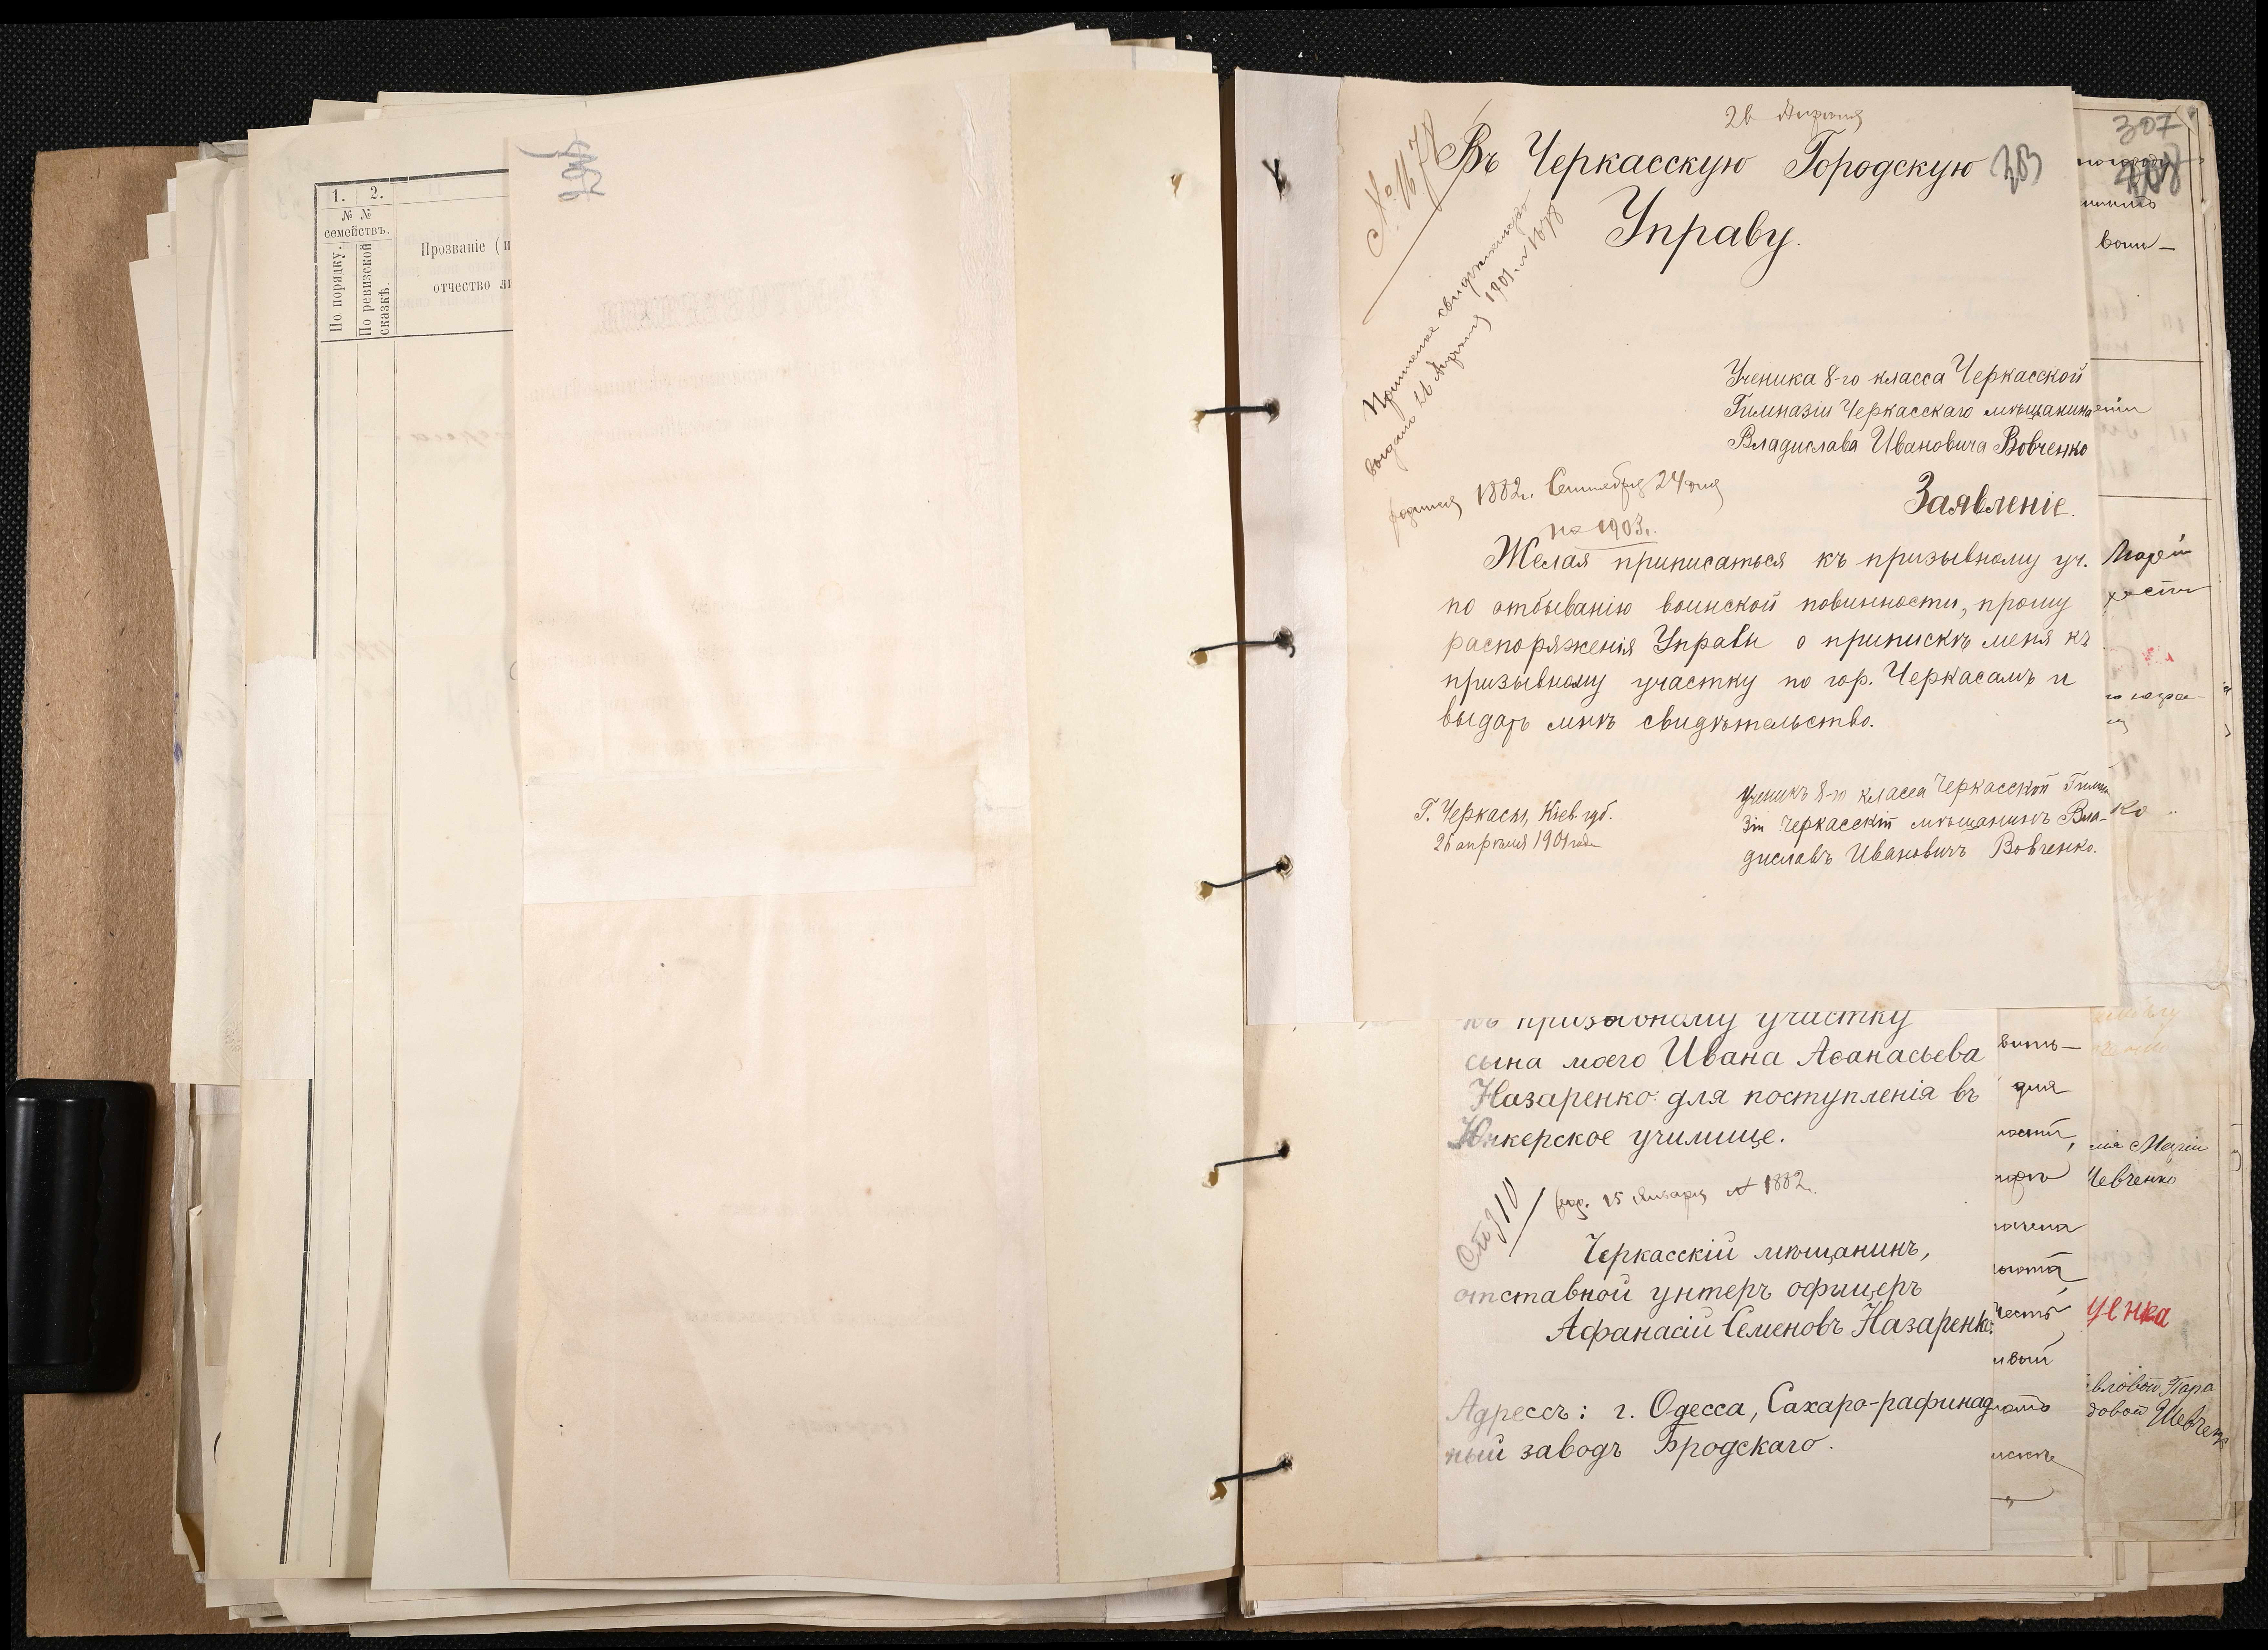 1. 2.
№ №
семействъ.
По порядку.
По ревизской
сказкѣ.
Прозваніе (и
отчество ли
26 Апрѣля
№ 1678
Въ Черкасскую Городскую
Управу.
Приписное свидѣтельство
выдано 26 Апрѣля 1901 г. № 1678
Ученика 8-го класса Черкасской
Гимназіи Черкасскаго мѣщанина
Владислава Ивановича Вовченко
родился 1882 г. Сентября 24 дня
на 1903 г.
Заявленіе.
Желая приписаться къ призывному уч.
по отбыванію воинской повинности, прошу
распоряженія Управы о припискѣ меня къ
призывному участку по гор. Черкасамъ и
выдать мнѣ свидѣтельство.
Г. Черкасы, Кіев. губ.
26 апрѣля 1901 года
Ученикъ 8-го класса Черкасской Гимна
зіи Черкасскій мѣщанинъ Вла-
диславъ Ивановичъ Вовченко.
къ призывному участку
сына моего Ивана Аѳанасьева
Назаренко для поступленія въ
Юнкерское училище.
род. 15 Января 1882 г.
Черкасскій мѣщанинъ,
отставной унтеръ офицеръ
Афанасій Семеновъ Назаренко
Адрессъ: г. Одесса, Сахаро-рафинад
ный заводъ Бродскаго.
307
вои-
Марій
ко
для
Марій
Чевченко
уенка
вловой Пара
довой Шевчен